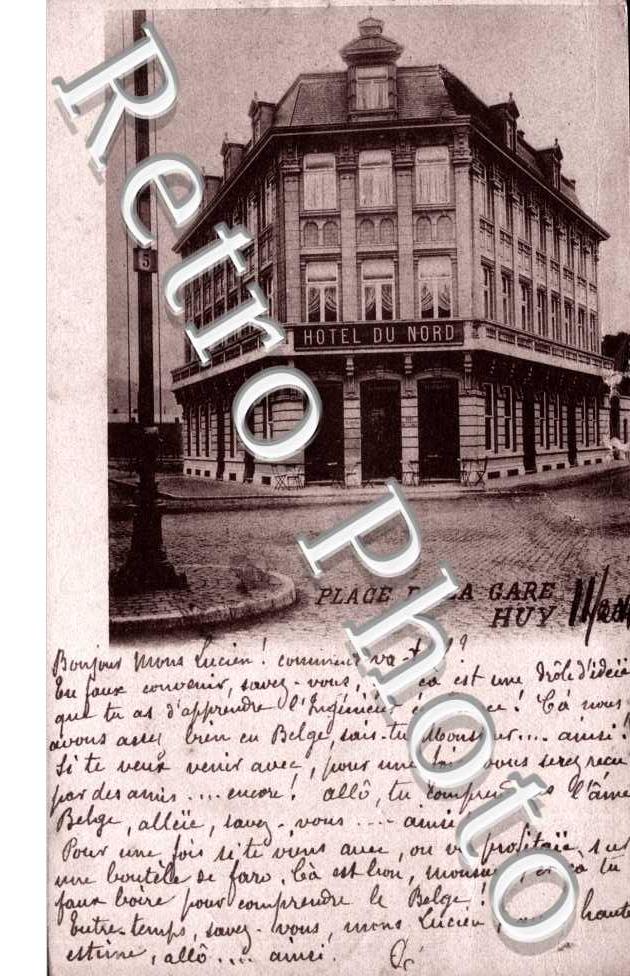 Retro Photo
5
HOTEL DU NORD
PLACE LA GARE
HUY
11/
Bonjour Mons Lucien! comment va-t ?
En faux convenir, savez-vous, ça est une drôle d'ideïe
que tu as d'apprendre l'Ingénieur ! Çà nous
avons assez bien en Belge, sais-tu Monsieur.... ainsi!
Si te veux venir avec, pour une fois vous serez reçu
par des amis .... encore! allô, tu comprendras l'âme
Belge, alleïe, savez-vous .... ainsi!
Pour une fois si te viens avec, on va profitaïe sur
une boutèle de faro. Çà est bon, monsieur, et çà tu
faux boire pour comprendre le Belge!
Entre-temps, savez-vous, mons Lucien, haute
estime, allô.... ainsi!